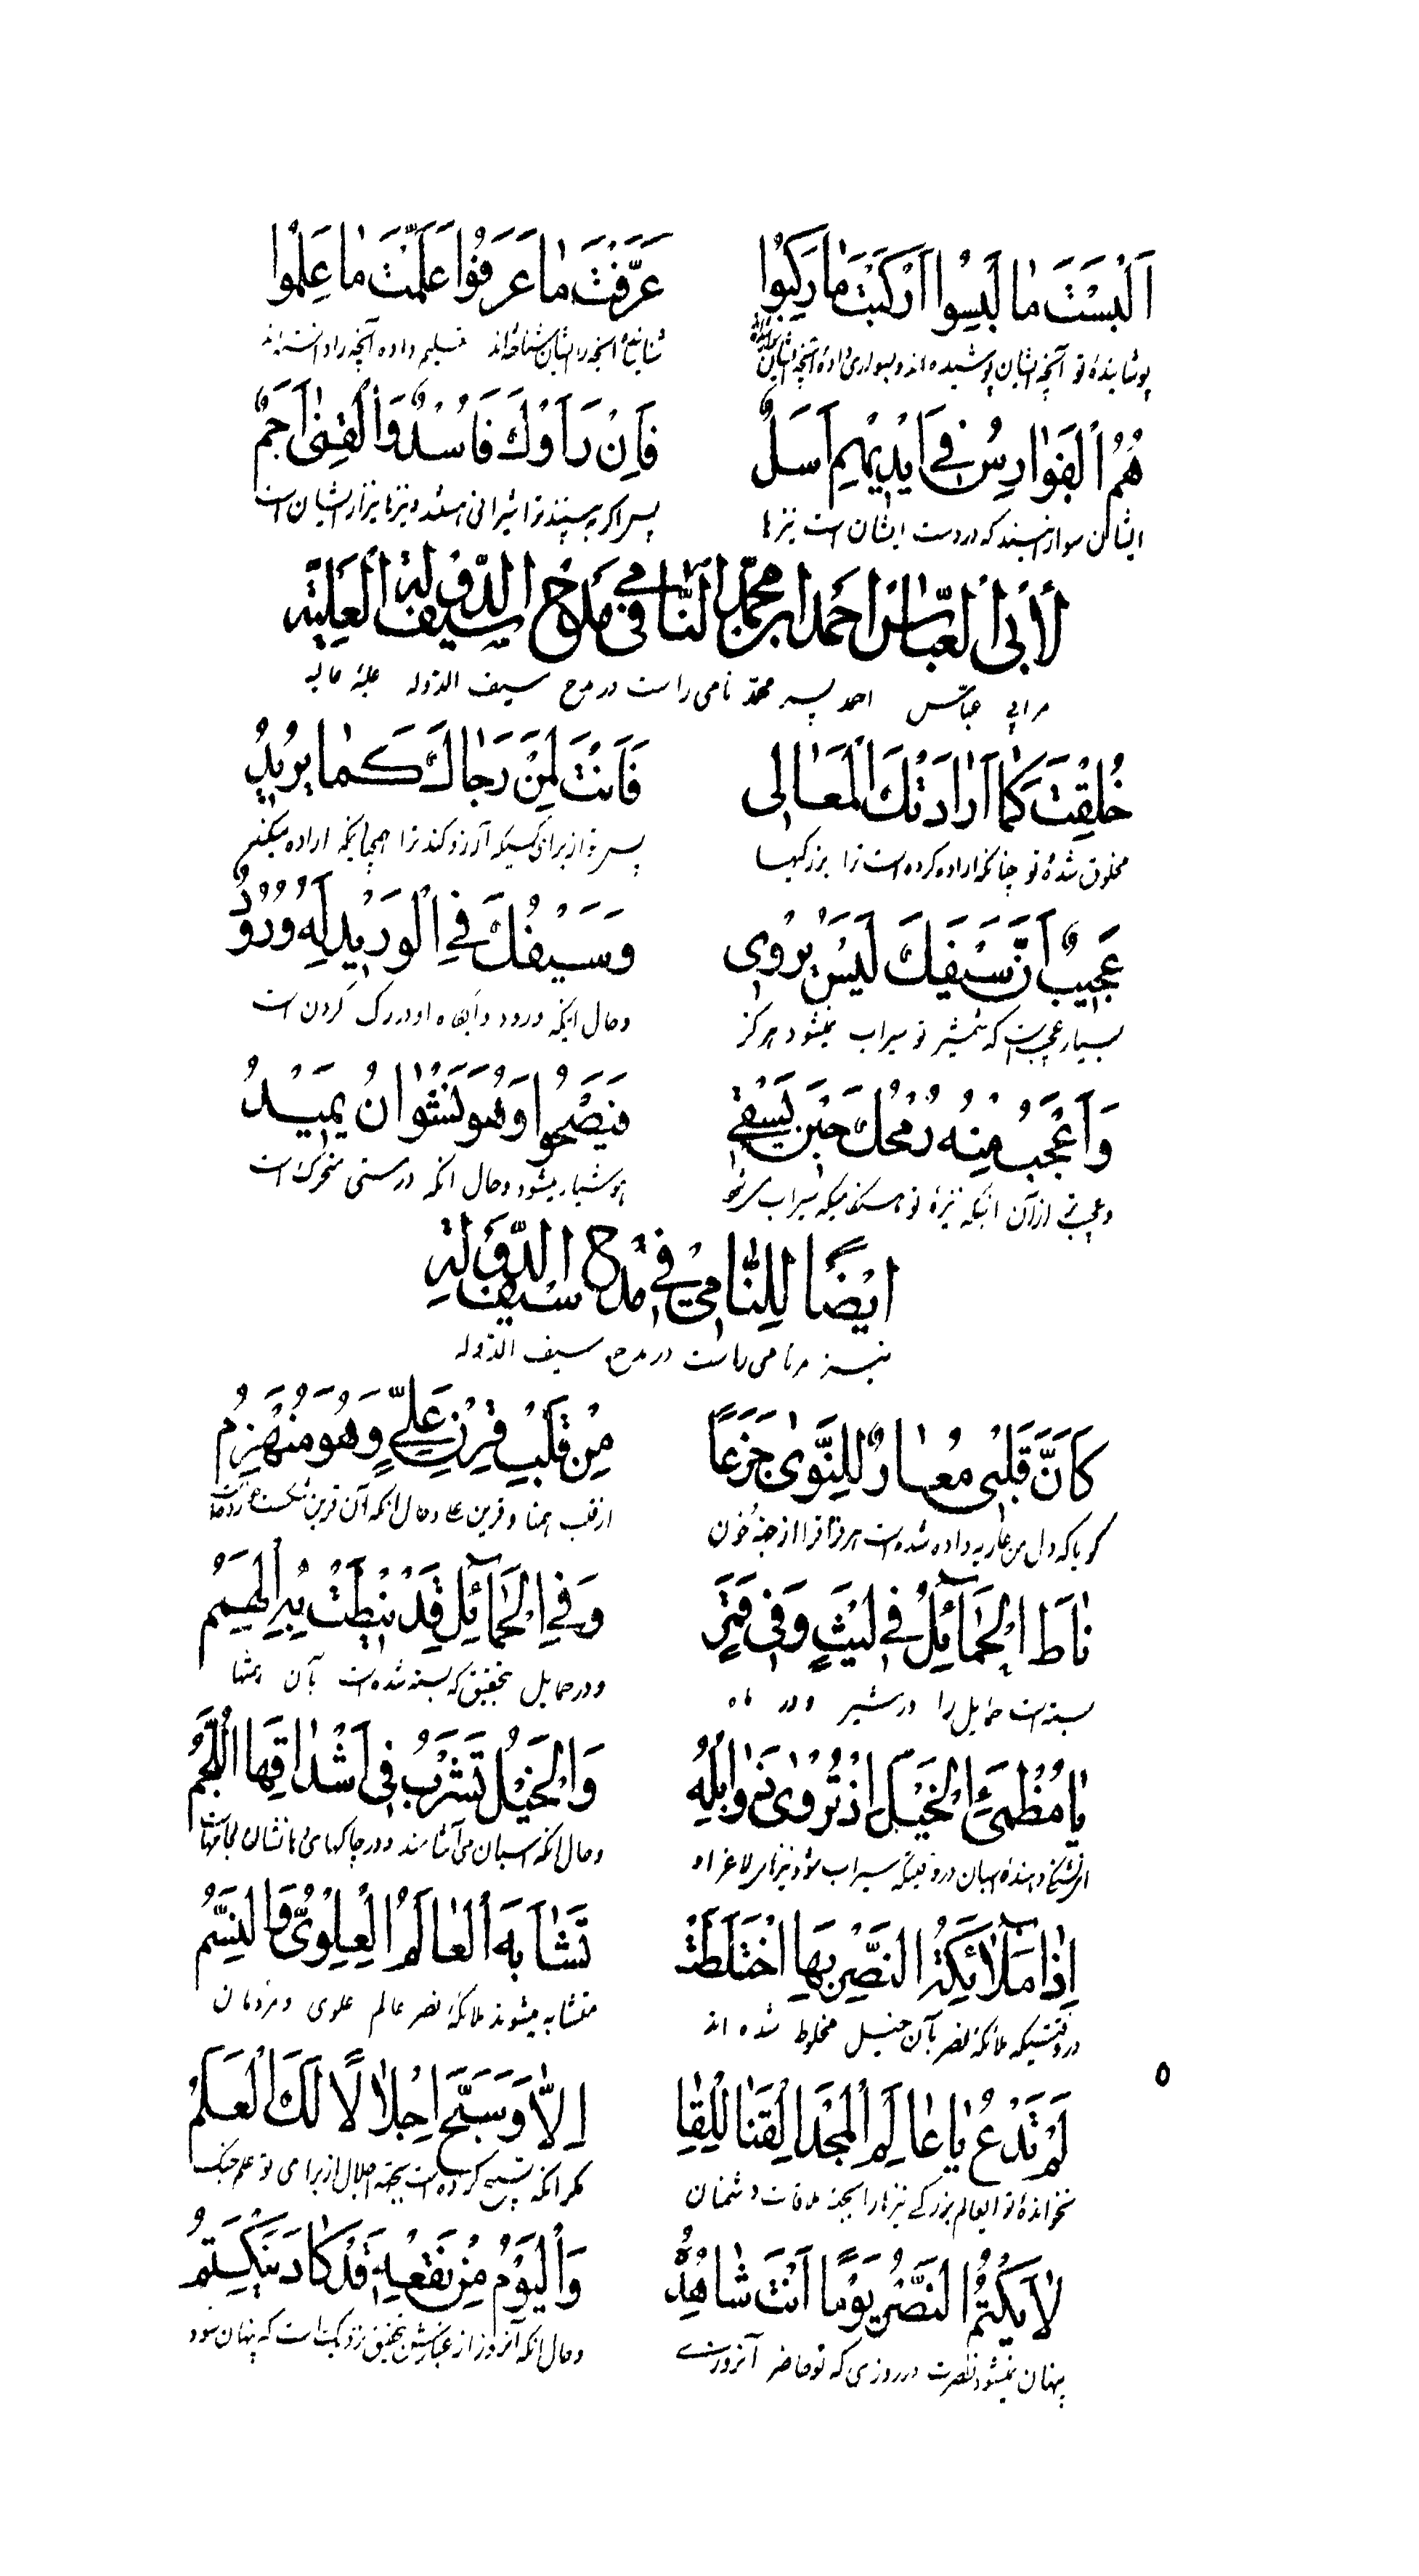 اَلْبَسْتَ مٰا لَبِسُوا اَرْكَبْتَ مٰا رَكِبُوا
عَرَّفْتَ مٰا عَرَفُوا عَلَّمْتَ مٰا عَلِمُوا
پوشانیدهٔ تو آنچه ایشان پوشیده‌اند و بسواری دادهٔ آنچه ایشان
آنچه را ایشان شناخته‌اند تعلیم داده آنچه را دانسته‌اند
هُمُ الْفَوٰارِسُ فِي اَيْدِيْهِمِ اَسَلٌ
فَاِنْ رَاَوْكَ فَاُسْدٌ وَالْقِنٰى اَجَمٌ
ایشان سوارانند که در دست ایشان است نیزها
پس اگر ببینند ترا شیرانی هستند و نیزها نیزار ایشان است
لِاَبِي الْعَبّٰاسِ اَحْمَدَ ابْنِ مُحَمَّدٍ النّٰامِي فِي مَدْحِ سَيْفِ الدَّوْلَةِ الْعَلِيَّةِ
مر ابی عباس احمد پسر محمد نامی راست در مدح سیف الدوله علیهٔ عالیه
خُلِقْتَ كَمٰا اَرٰادَتْكَ الْمَعٰالِى
فَاَنْتَ لِمَنْ رَجٰاكَ كَمٰا يُرِيْدُ
مخلوق شدهٔ تو چنانکه اراده کرده است ترا بزرگیها
پس تو از برای کسیکه آرزو کند ترا همچنانکه اراده میکند
عَجِيْبٌ اَنَّ سَيْفَكَ لَيْسَ يَرْوِى
وَسَيْفُكَ فِي الْوَرِيْدِ لَهُ وُرُوْدٌ
بسیار عجیب است که شمشیر تو سیراب نمیشود هرگز
و حال اینکه ورود و آبگاه او در رگ گردن است
وَاَعْجَبُ مِنْهُ رُمْحُكَ حِيْنَ يَسْقِي
فَيَصْحُوا وَهُوَ نَشْوٰانُ يَمِيْدُ
و عجیب‌تر از آن اینکه نیزهٔ تو هنگامیکه سیراب میشود
هوشیار میشود و حال آنکه در مستی متحرک است
اَيْضًا لِلنّٰامِيْ فِي مَدْحِ سَيْفِ الدَّوْلَةِ
نیز مر نامی راست در مدح سیف الدوله
كَاَنَّ قَلْبِى مُعٰارٌ لِلنَّوٰى جَزَعًا
مِنْ قَلْبِ قِرْنِ عَلِيٍّ وَهُوَ مُنْهَزِمُ
گویا که دل من عاریه داده شده است هر فراق را از جهة حزن
از قلب همتا و قرین علی و حال آنکه آن قرین شکست خورده است
نٰاطَ الْحَمٰآئِلَ فِي لَيْثٍ وَفِى قَمَرٍ
وَفِي الْحَمٰآئِلِ قَدْ نِيْطَتْ بِهِ الْهِمَمُ
بسته است حمایل را در شیر و در ماه
و در حمایل بتحقیق که بسته شده است بآن همتها
يٰا مُظْمِئَ الْخَيْلِ اِذْ تُرْوٰى ذَوٰابِلُهُ
وَالْخَيْلُ تَشْرَبُ فِى اَشْدٰاقِهَا اللُّجُمُ
ای تشنگی دهندهٔ اسبان در وقتیکه سیراب شود نیزهای لاغر او
و حال آنکه اسبان می‌آشامند و در چاکهای دهانشان لجامهاست
اِذٰا مَلٰآئِكَةُ النَّصْرِ بِهَا اخْتَلَطَتْ
تَشٰابَهَ الْعٰالَمُ الْعُلْوِيُّ وَالنَّسَمُ
در وقتیکه ملائکهٔ نصر بآن خیل مخلوط شده اند
متشابه میشوند ملائکهٔ نصر عالم علوی و مردمان
لَمْ تَدْعُ يٰا عٰالَمَ الْمَجْدِ الْقَنٰا لِلِقٰا
اِلّٰا وَسَبَّحَ اِجْلٰالًا لَكَ الْعَلَمُ
نخواندهٔ تو ایعالم بزرگی نیزها را بجهة ملاقات دشمنان
مگر آنکه تسبیح کرده است بجهة اجلال از برای تو علم جنگ
٥
لٰا يَكْتُمُ النَّصْرُ يَوْمًا اَنْتَ شٰاهِدُهُ
وَالْيَوْمُ مِنْ نَقْعِهِ قَدْ كٰادَ يَنْكَتِمُ
پنهان نمیشود نصرت در روزی که تو حاضر آنروزی
و حال آنکه آنروز از غبارش بتحقیق نزدیک است که پنهان شود